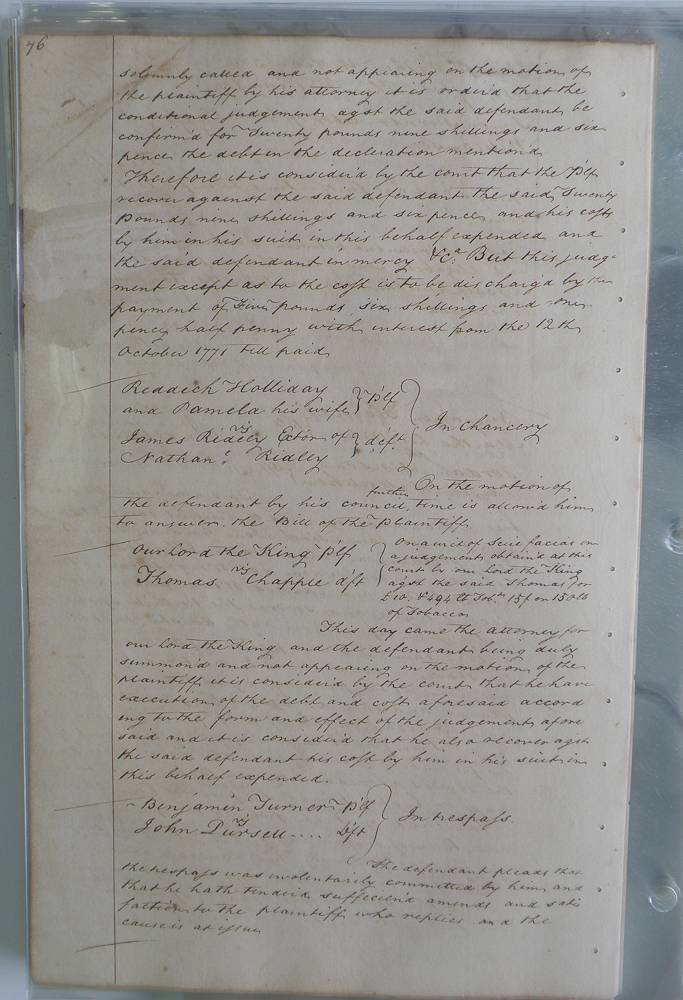 76
solemnly called and not appearing on the motion of
the plaintiff by his attorney it is order'd that the
conditional judgement agst the said defendant be
confirm'd for Twenty pounds nine shillings and six
pence the debt in the decleration mention'd
Therefore it is consider'd by the court that the Plf
recover against the said defendant the said Twenty
Pounds nine shillings and six pence and his costs
by him in his suit in this behalf expended and
the said defendant in mercy &c. But this judge
ment except as to the cost is to be discharg'd by the
payment of Five pounds six shillings and one
penny half penny with interest from the 12th
October 1771 till paid
Reddech Holliday
and Pamela his wife } Plf
vs } In Chancery
James Ridley Exctor of } deft.
Nathanl. Ridley
On the motion of
the defendant by his council further time is allow'd him
to answer the Bill of the Plaintiff
Our Lord the King Plf
vs
Thomas Chapple dft
On a writ of Scire facias on
a judgement obtain'd at this
court by our Lord the King
agst the said Thomas for
£10. & 494 lb Tobo. 15/ or 150 lb
of Tobacco
This day came the attorney for
our Lord the King and the defendant being duly
summon'd and not appearing on the motion of the
plaintiff it is consider'd by the court that he have
execution of the debt and cost aforesaid accord
ing to the form and effect of the judgement afore
said and it is consider'd that he also recover agst
the said defendant his cost by him in his suit in
this behalf expended.
Benjamin Turner Plf
vs } In trespass
John Pursell .... Dft
The defendant pleads that
the trespass was involentarily committed by him and
that he hath tender'd suffecien'd amends and satis
faction to the plaintiff who replies and the
cause is at issue